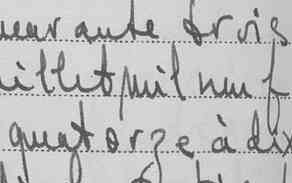 quarante trois
juillet mil neuf
quatorze à dix